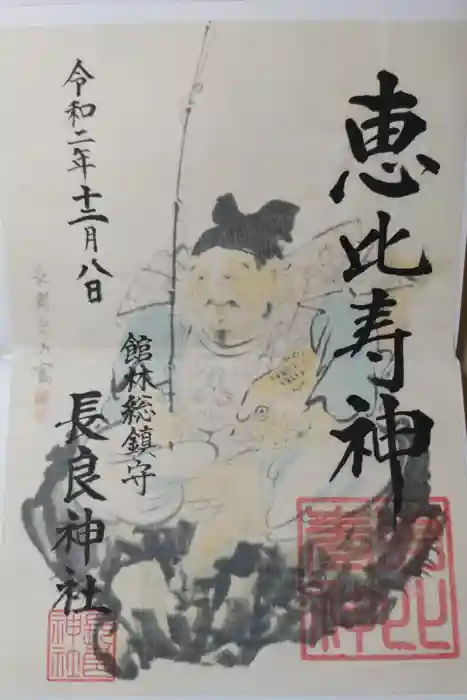 恵比寿神
館林総鎮守
長良神社
令和二年十二月八日
恵比
寿神
長良
神社